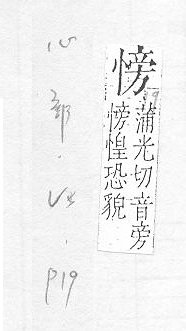 心部·V8·P19
㥬
蒲光切音旁
㥬惶恐貌